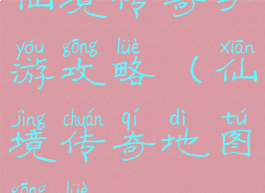 仙境传奇手
yóu gōng lüè xiān
游攻略（仙
jìng chuán qí dì tú
境传奇地图
gōng lüè